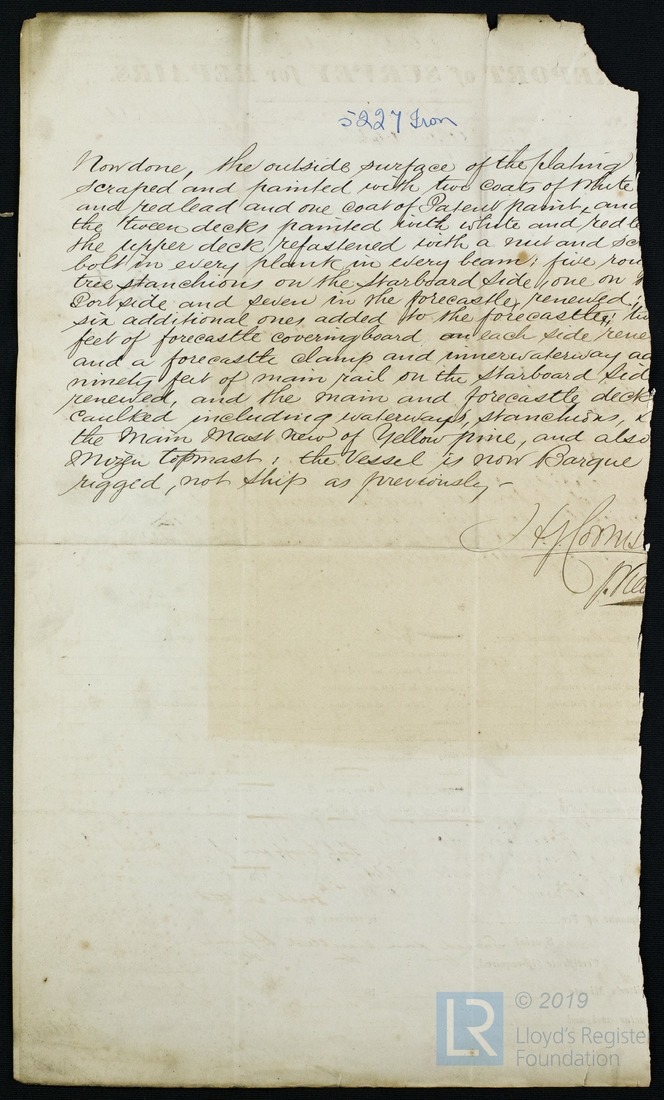 5227 Iron
Now done, the outside surface of the plating
scraped and painted with two coats of White
and red lead and one coat of Patent paint, and
the tween decks painted with white and red le
the upper deck refastened with a nut and sc
bolt in every plank in every beam; five rou
tree stanchions on the Starboard Side, one on
Port side and seven in the forecastle, renewed;
six additional ones added to the forecastle; tw
feet of forecastle coveringboard on each side rene
and a forecastle clamp and innerwaterway ad
ninety feet of main rail on the Starboard Sid
renewed, and the main and forecastle deck
caulked including waterways, stanchions,
the Main Mast new of Yellow pine, and also
Mizen topmast; the Vessel is now Barque
rigged, not Ship as previously —
LR
© 2019
Lloyd's Register
Foundation